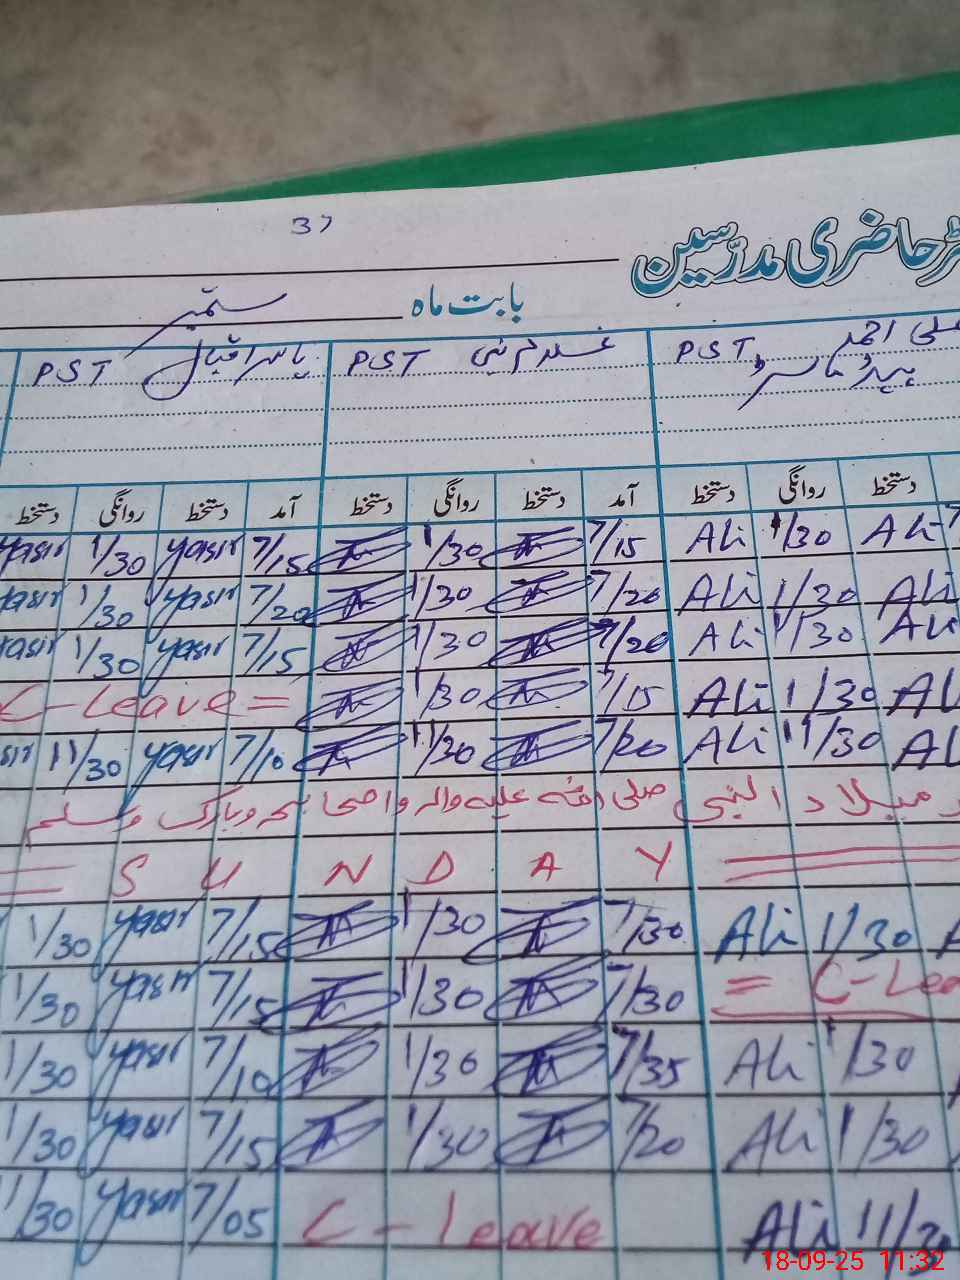 37
حاضری مدرسین
بابت ماہ ستمبر
علی احمد PST غلام نبی PST یاسر اقبال PST
ہیڈ ماسٹر
دستخط روانگی دستخط آمد دستخط روانگی دستخط آمد دستخط روانگی دستخط
Yasir 1/30 Yasir 7/15 1/30 7/15 Ali 1/30 Ali
Yasir 1/30 Yasir 7/20 1/30 7/20 Ali 1/30 Ali
Yasir 1/30 Yasir 7/15 1/30 7/20 Ali 1/30 Ali
C-Leave = 1/30 7/15 Ali 1/30 Al
sir 11/30 Yasir 7/10 11/30 7/20 Ali 11/30 Al
میلاد النبی صلی اللہ علیہ والہ واصحابہ وبارک وسلم
= S U N D A Y =
1/30 Yasir 7/15 1/30 7/30 Ali 1/30 A
1/30 Yasir 7/15 1/30 7/30 = C-Lea
1/30 Yasir 7/10 1/30 7/35 Ali 1/30
1/30 Yasir 7/15 1/30 7/20 Ali 1/30
11/30 Yasir 7/05 C-leave Ali 11/3
18-09-25 11:32